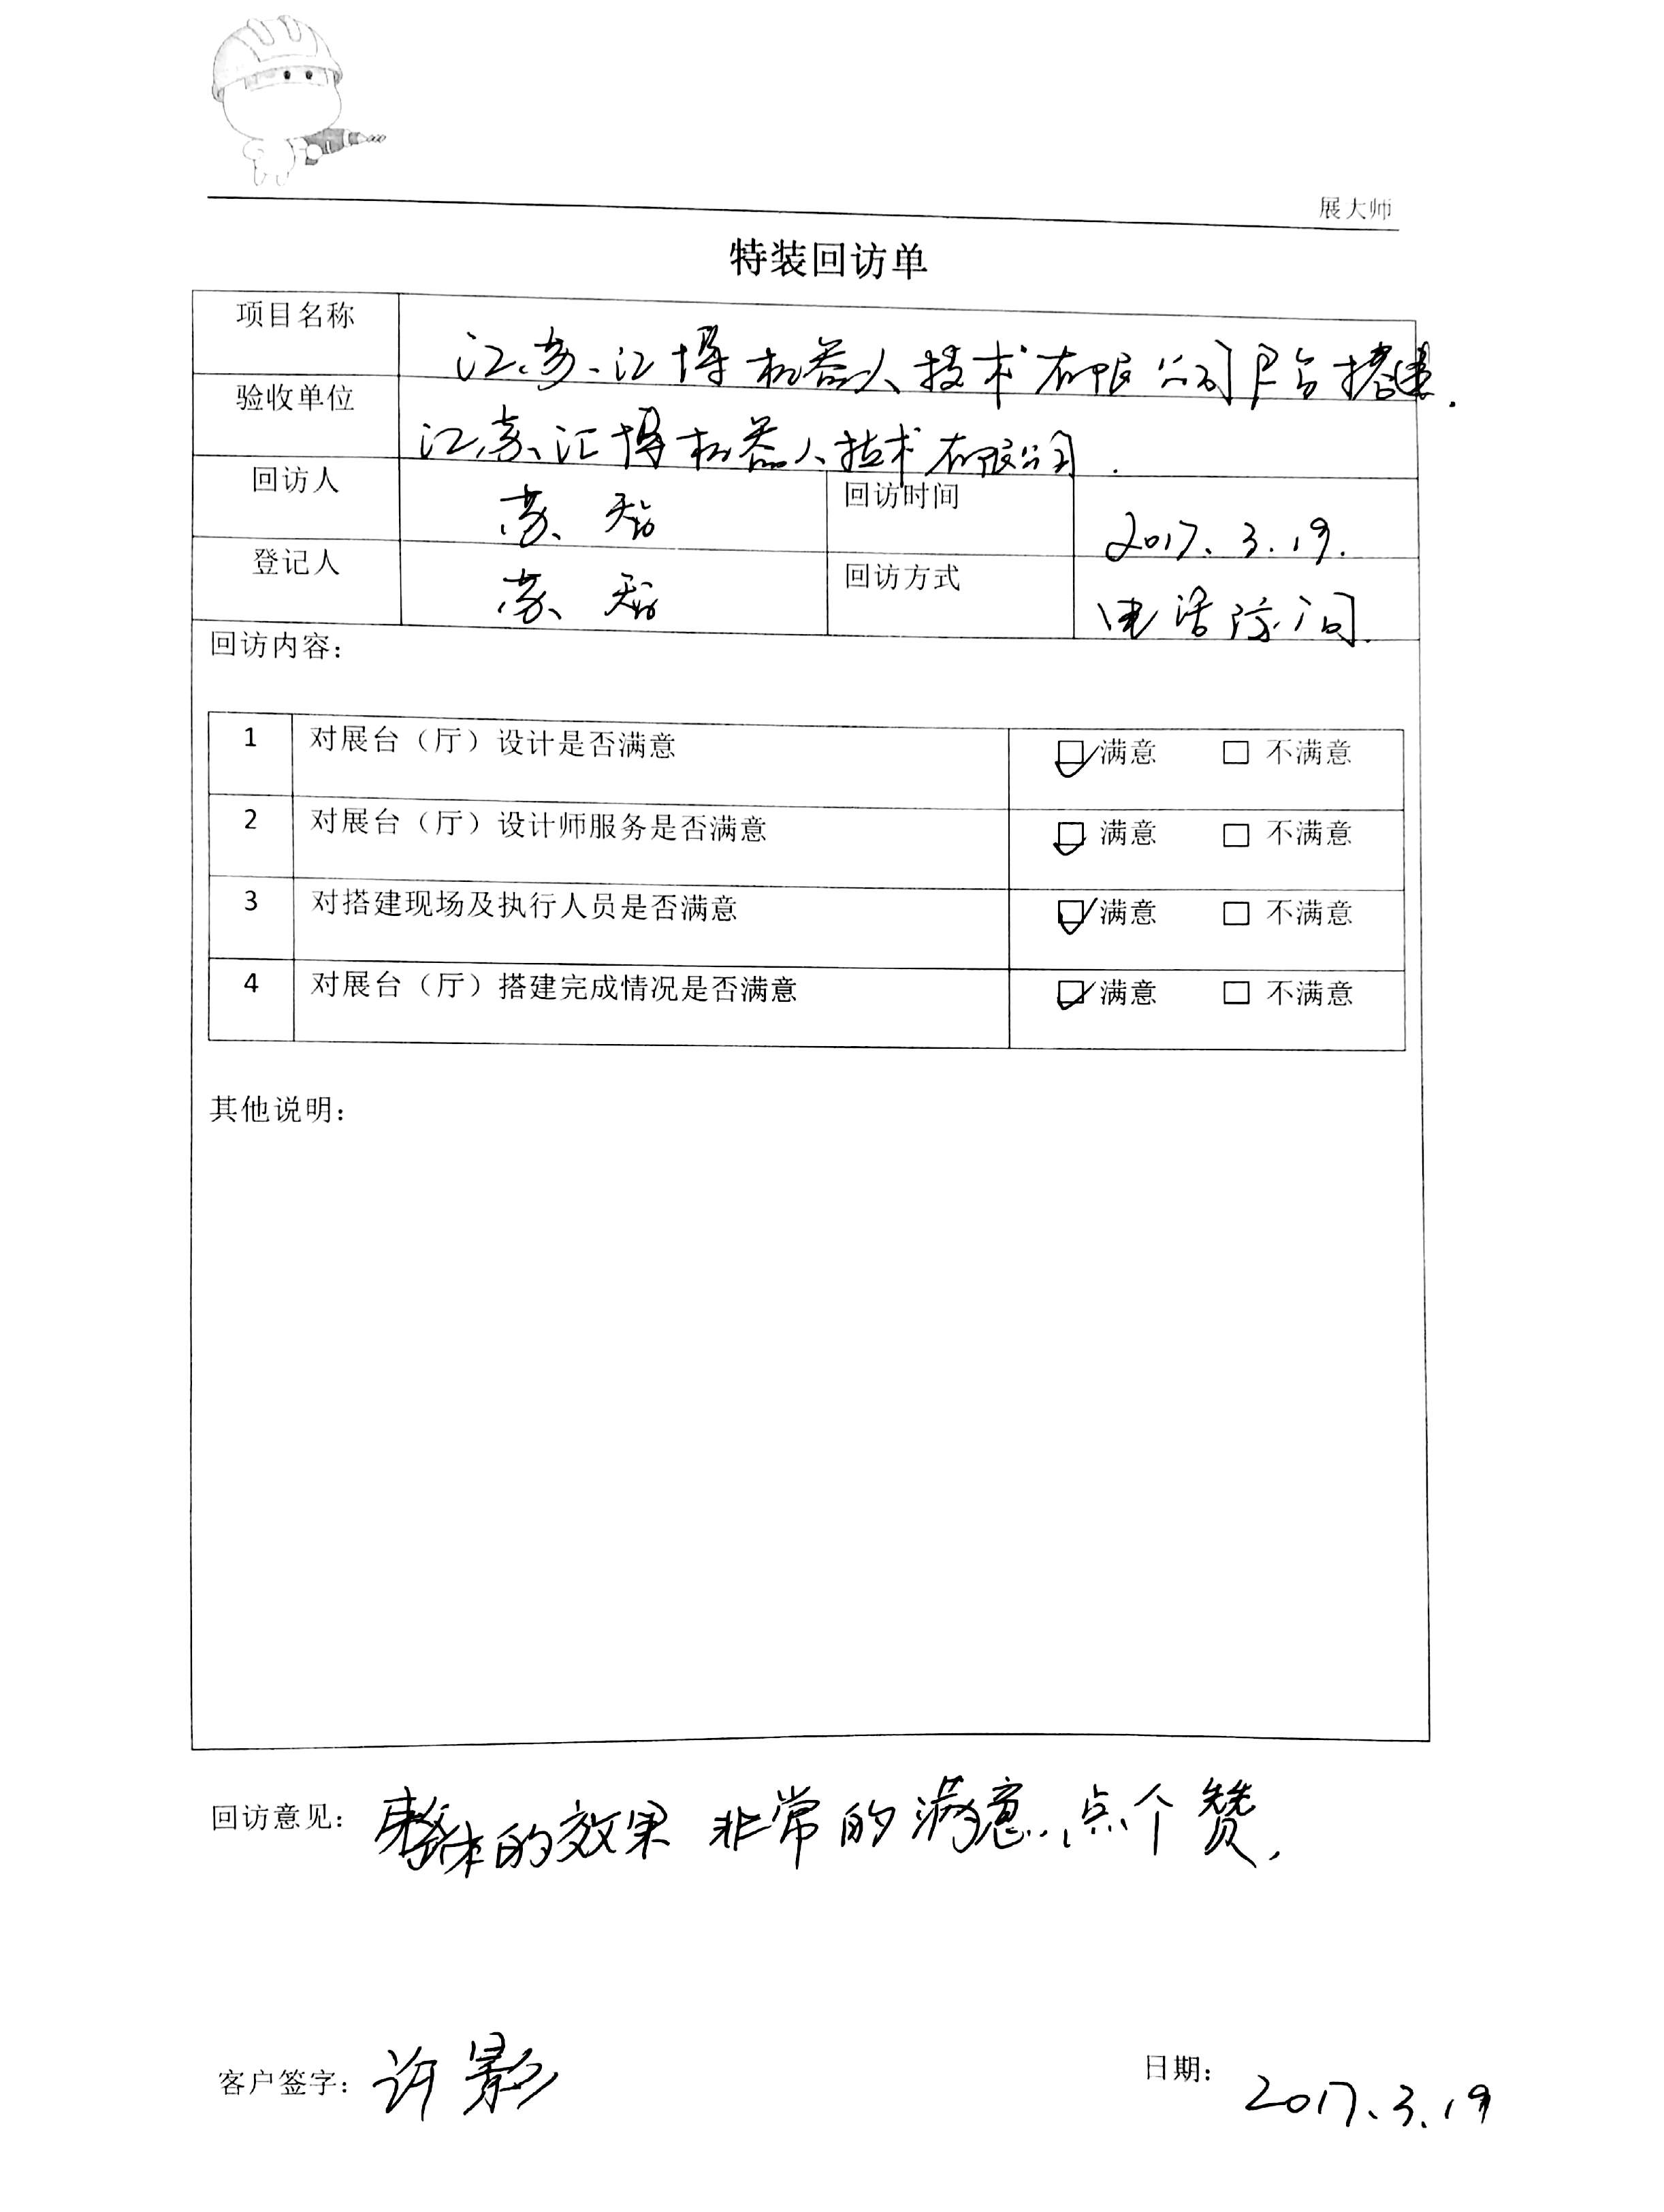 展大师
特装回访单
项目名称 江苏汇博机器人技术有限公司展台搭建.
验收单位 江苏汇博机器人技术有限公司.
回访人 苏 回访时间 2017.3.19.
登记人 苏 回访方式 电话访问.
回访内容：
1 对展台（厅）设计是否满意 ☑满意 □ 不满意
2 对展台（厅）设计师服务是否满意 ☑ 满意 □ 不满意
3 对搭建现场及执行人员是否满意 ☑满意 □ 不满意
4 对展台（厅）搭建完成情况是否满意 ☑满意 □ 不满意
其他说明：
回访意见：整体的效果非常的满意.点个赞.
客户签字：许影 日期：2017.3.19